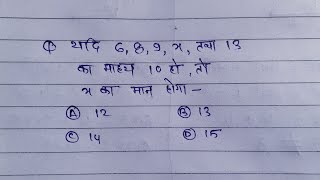 Q यदि 6, 8, 9, x, तथा 13
का माध्य 10 हो, तो
x का मान होगा -
(A) 12 (B) 13
(C) 14 (D) 15